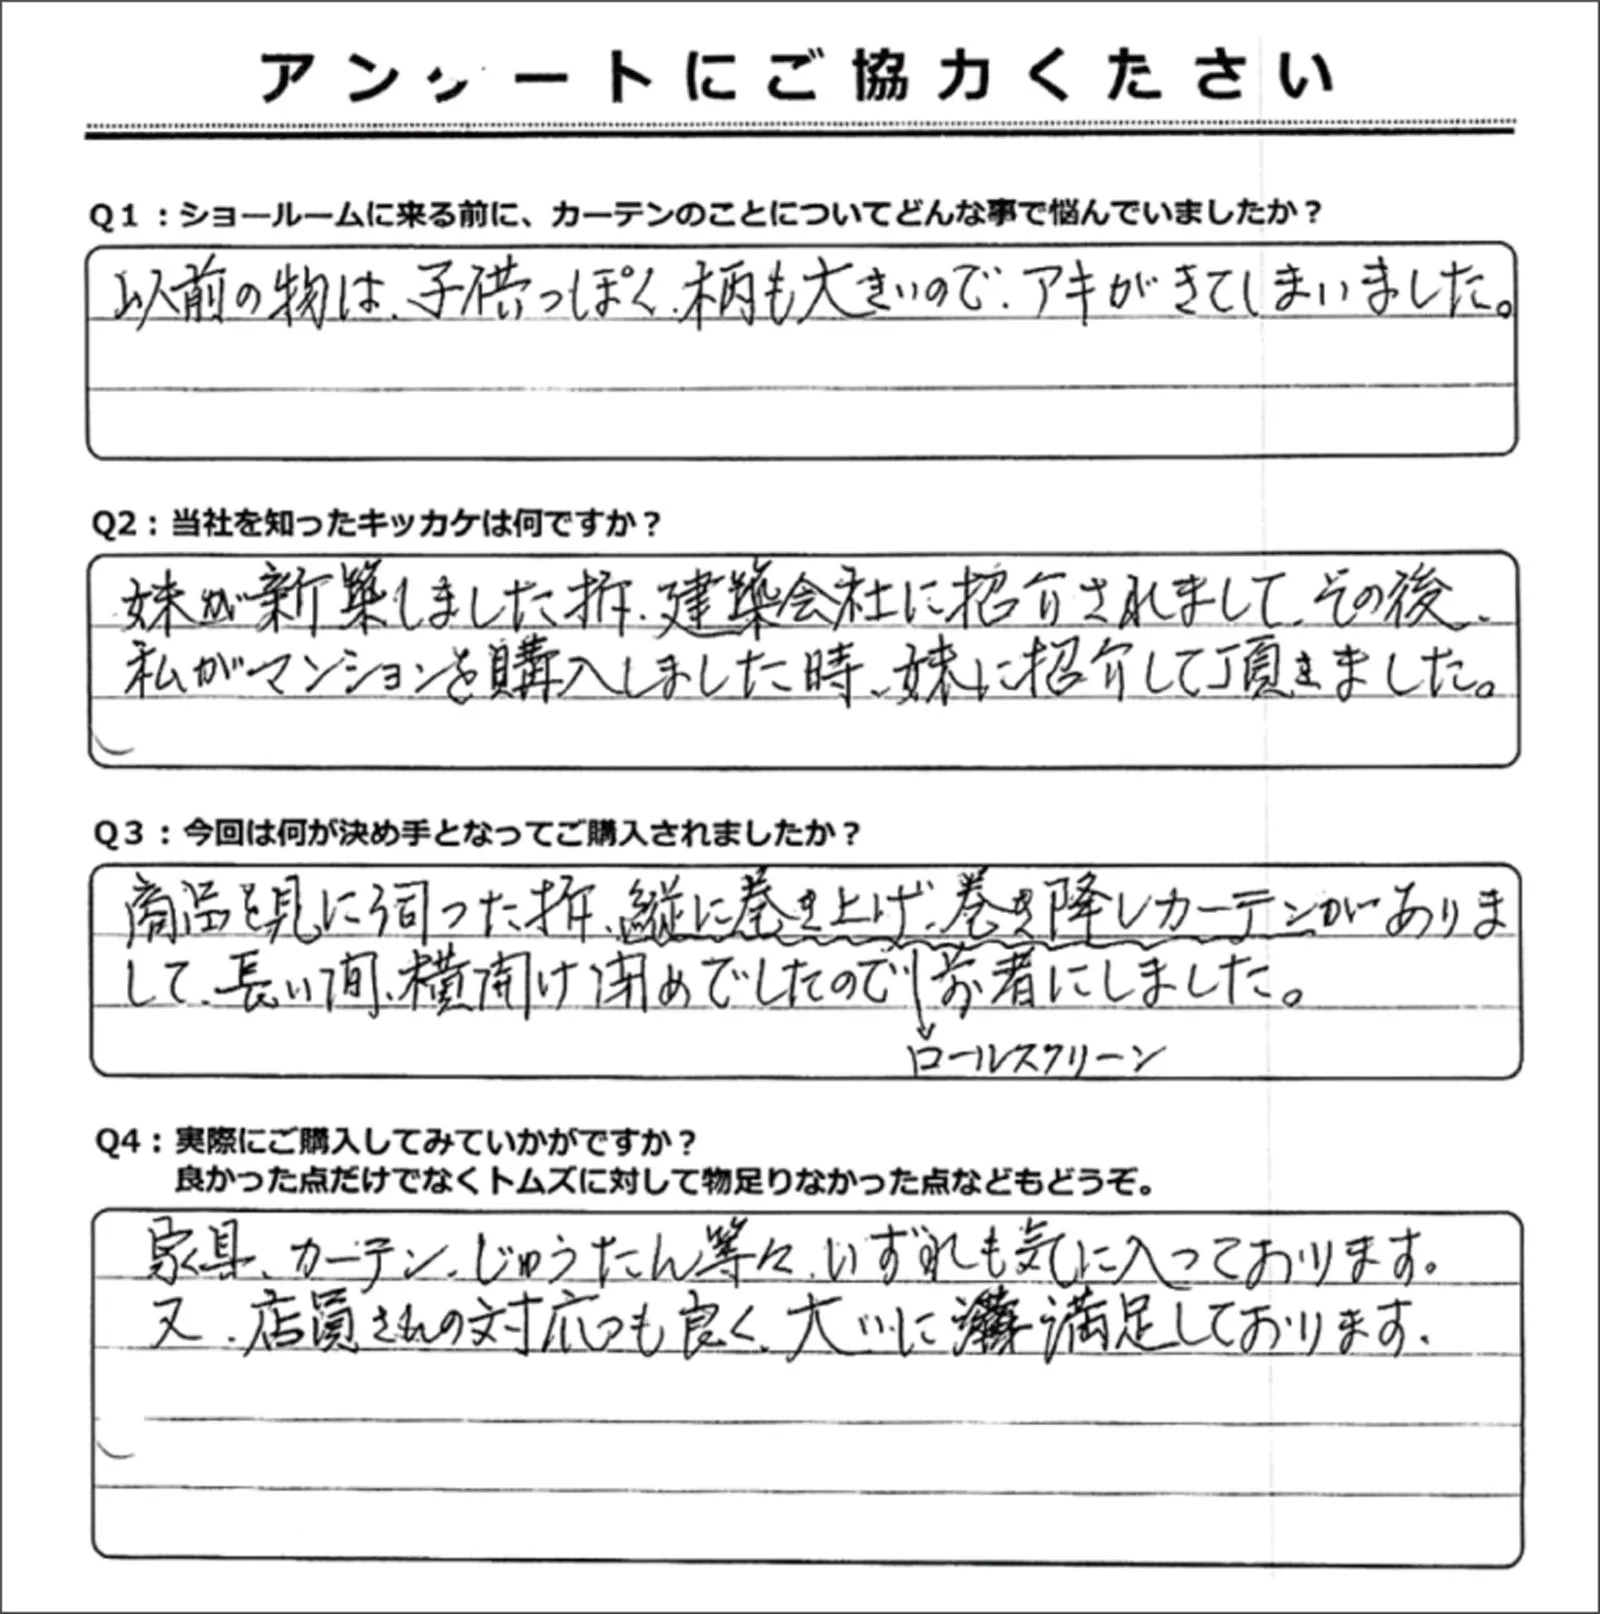 アンケートにご協力ください
Q1：ショールームに来る前に、カーテンのことについてどんな事で悩んでいましたか？
以前の物は、子供っぽく、柄も大きいので、アキがきてしまいました。
Q2：当社を知ったキッカケは何ですか？
妹が新築しました折、建築会社に招介されまして、その後、
私がマンションを購入しました時、妹に招介して頂きました。
Q3：今回は何が決め手となってご購入されましたか？
商品を見に伺った折、縦に巻き上げ、巻き降しカーテンがありま
して、長い間、横開け閉めでしたので、前者にしました。
ロールスクリーン
Q4：実際にご購入してみていかがですか？
良かった点だけでなくトムズに対して物足りなかった点などもどうぞ。
家具、カーテン、じゅうたん等々、いずれも気に入っております。
又、店員さんの対応つも良く、大いに満足しております。